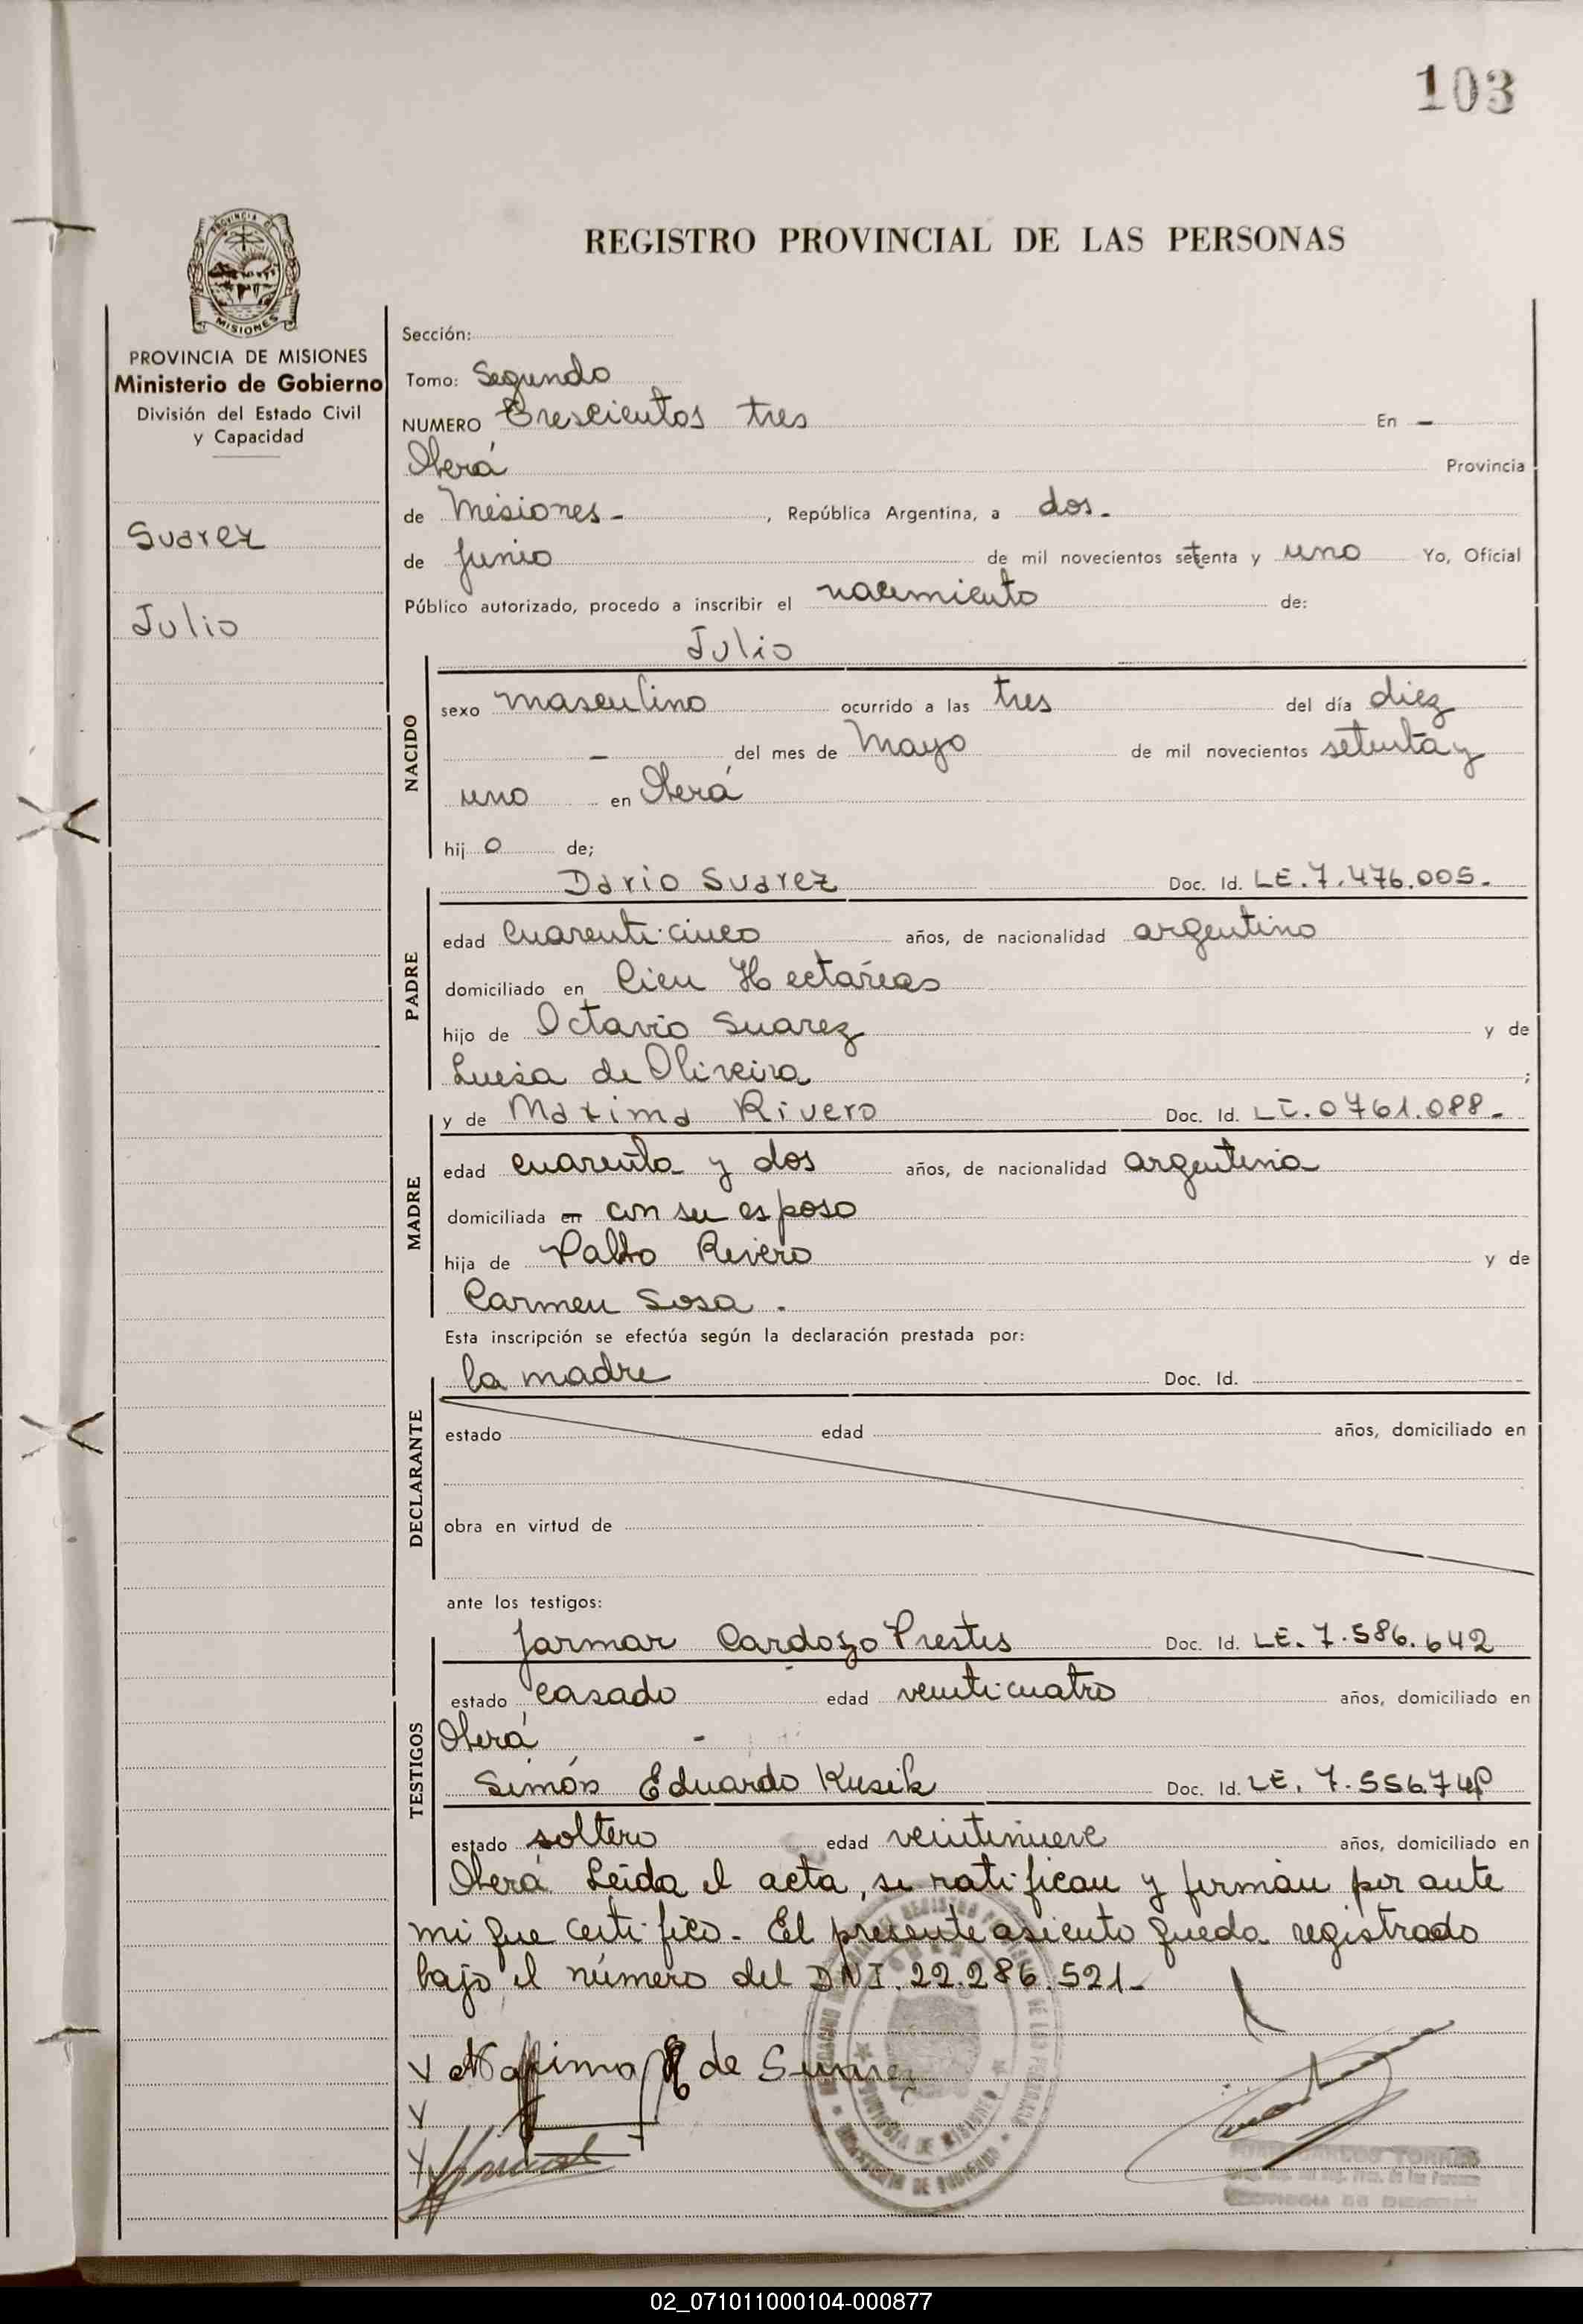 103
REGISTRO PROVINCIAL DE LAS PERSONAS
MISIONES
PROVINCIA DE MISIONES
Ministerio de Gobierno
División del Estado Civil
y Capacidad
Suarez
Julio
Sección:
Tomo: Segundo
NUMERO Trescientos tres En -
Oberá Provincia
de Misiones - , República Argentina, a dos -
de Junio de mil novecientos setenta y uno Yo, Oficial
Público autorizado, procedo a inscribir el nacimiento de:
Julio
NACIDO
sexo masculino ocurrido a las tres del día diez
- del mes de Mayo de mil novecientos setenta y
uno en Oberá
hij o de;
Dario Suarez Doc. Id. LE. 7.476.005.-
PADRE
edad cuarenticinco años, de nacionalidad argentino
domiciliado en Cien Hectáreas
hijo de Octavio Suarez y de
Luisa de Oliveira ;
y de Maxima Rivero Doc. Id. LC. 0761.088.-
MADRE
edad cuarenta y dos años, de nacionalidad argentina
domiciliada en con su esposo
hija de Pablo Rivero y de
Carmen Sosa .
Esta inscripción se efectúa según la declaración prestada por:
la madre Doc. Id.
DECLARANTE
estado edad años, domiciliado en
obra en virtud de
ante los testigos:
Jarmar Cardozo Prestes Doc. Id. LE. 7.586.642
TESTIGOS
estado casado edad veinticuatro años, domiciliado en
Oberá -
Simón Eduardo Kusik Doc. Id. LE. 7.556.74
estado soltero edad veintinueve años, domiciliado en
Oberá Leida el acta, se ratifican y firman por ante
mi que certifico - El presente asiento queda registrado
bajo el número del DNI. 22.286.521-
Maxima R de Suarez
TORRES
02_071011000104-000877